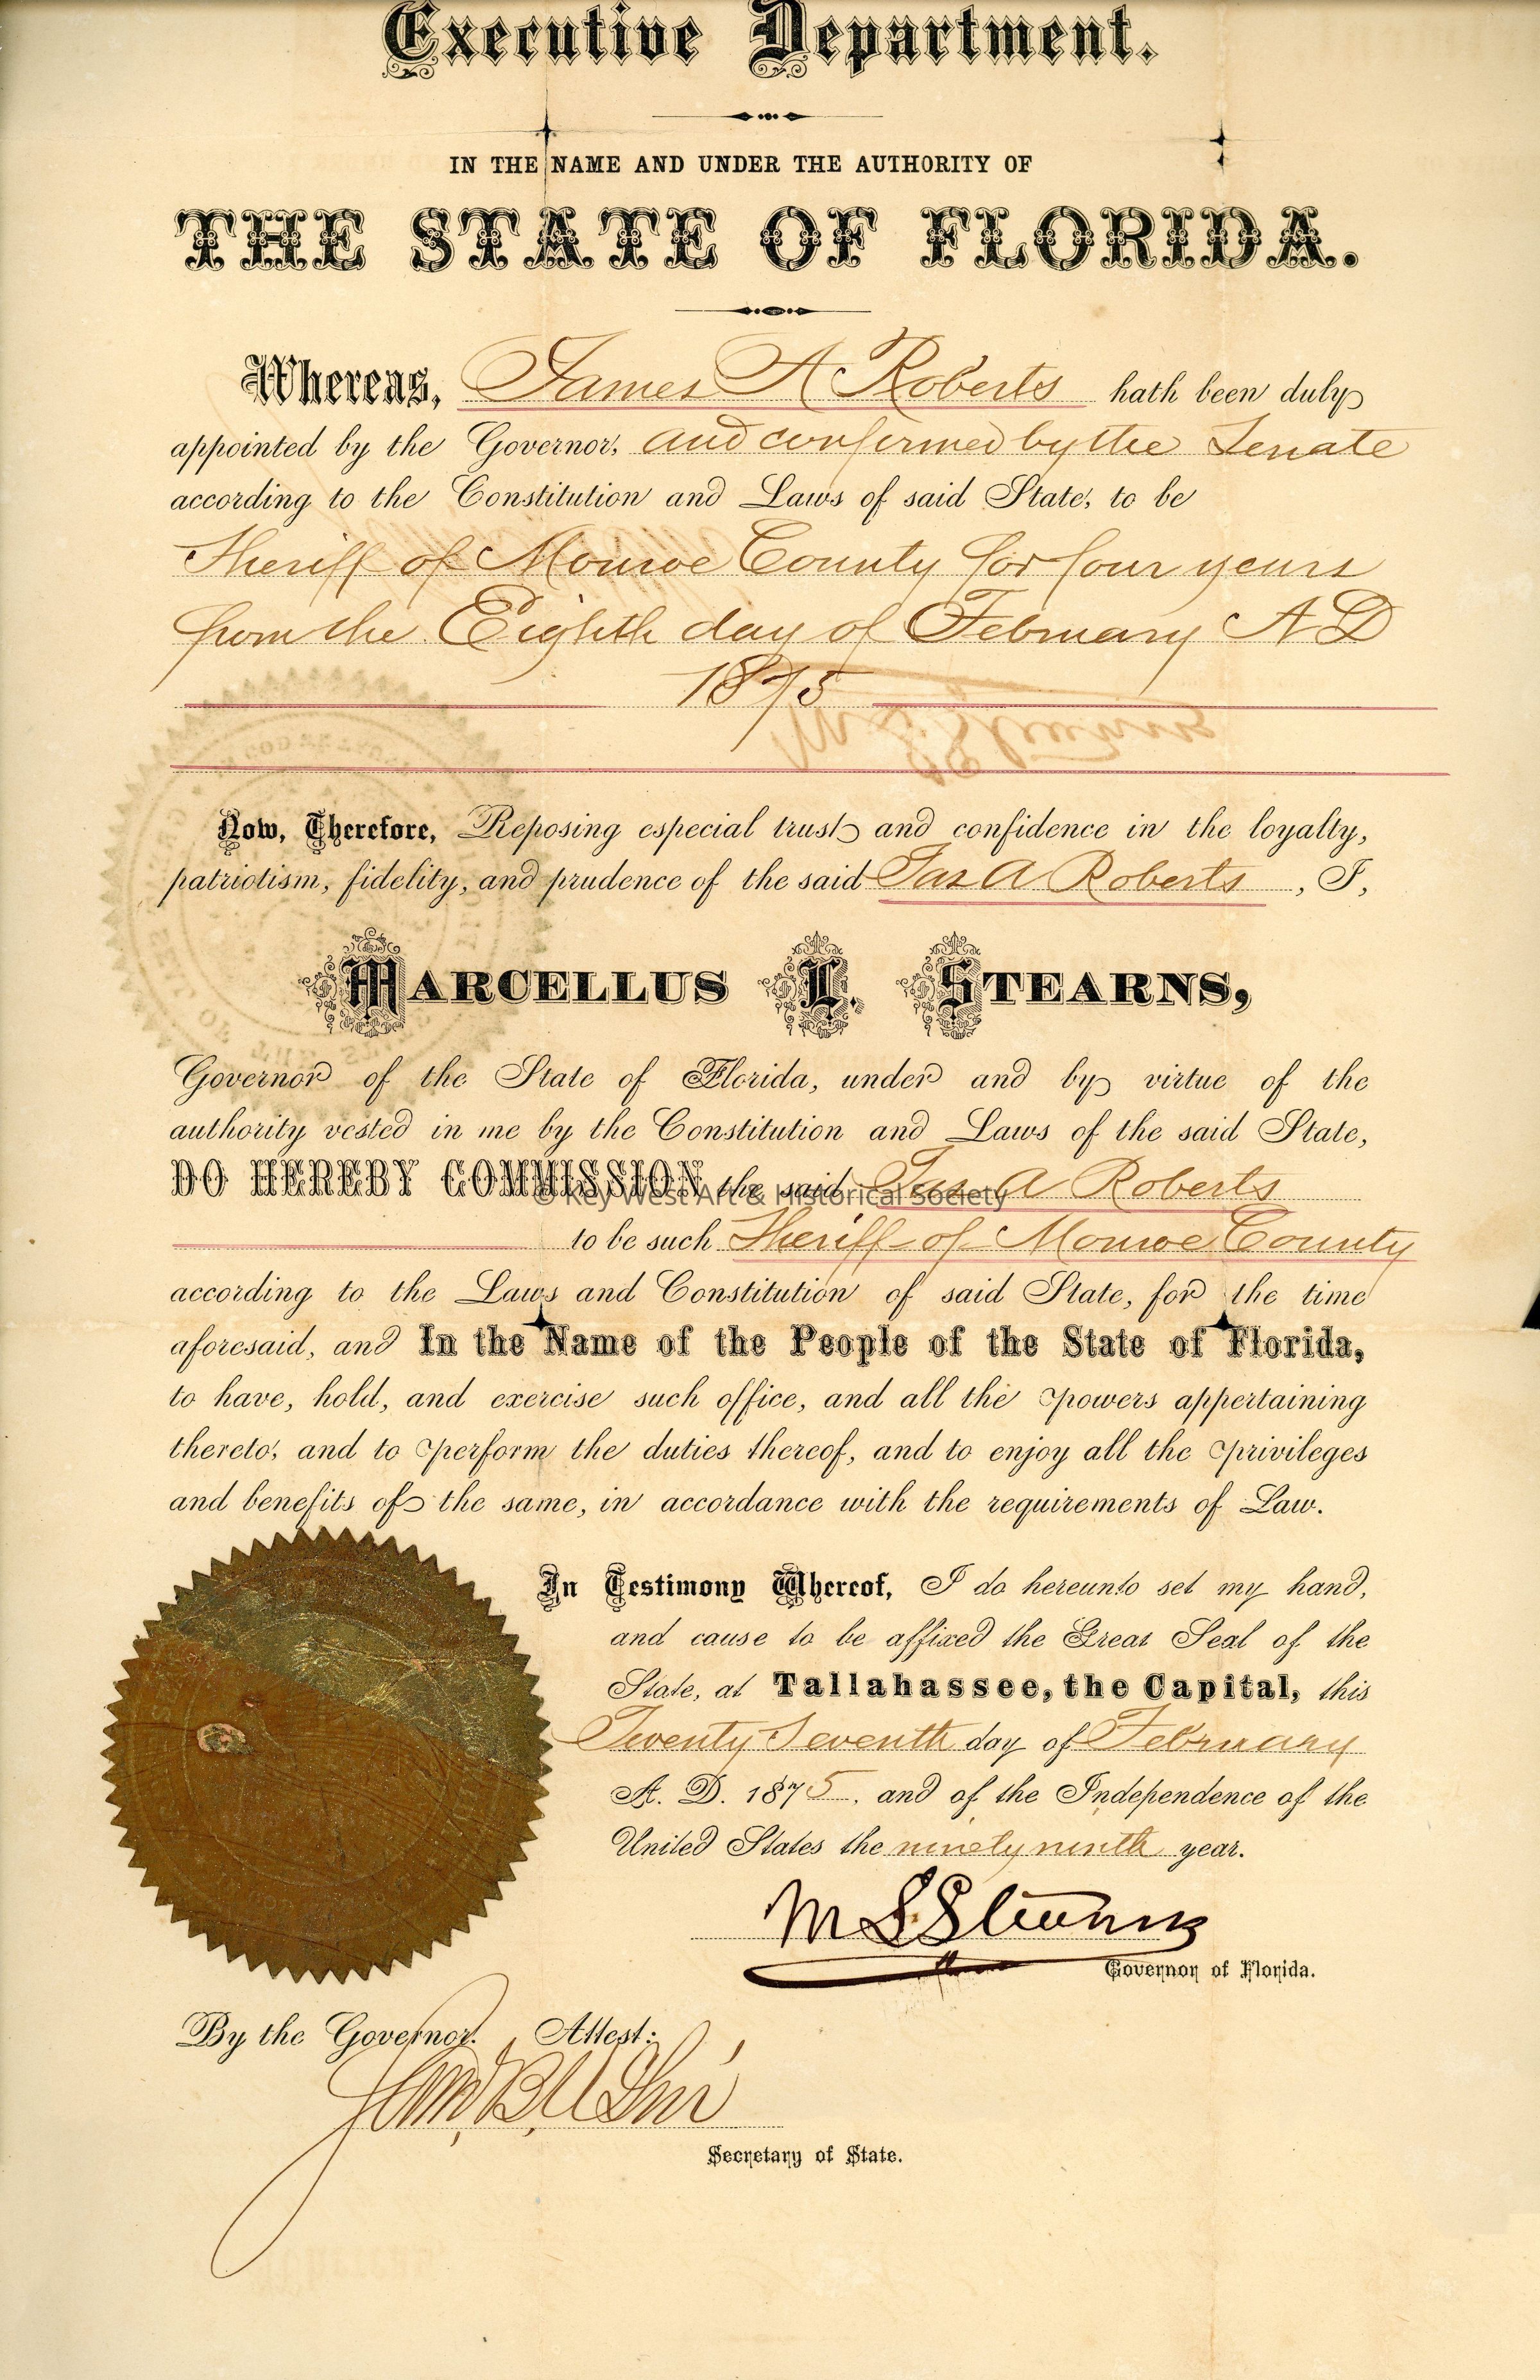 Executive Department.
IN THE NAME AND UNDER THE AUTHORITY OF
THE STATE OF FLORIDA.
Whereas, James A Roberts hath been duly
appointed by the Governor, and confirmed by the Senate
according to the Constitution and Laws of said State, to be
Sheriff of Monroe County for four years
from the Eighth day of February A D
1875
Now, Therefore, Reposing especial trust and confidence in the loyalty,
patriotism, fidelity, and prudence of the said Jas A Roberts, I,
MARCELLUS L. STEARNS,
Governor of the State of Florida, under and by virtue of the
authority vested in me by the Constitution and Laws of the said State,
DO HEREBY COMMISSION the said Jas A Roberts
© Key West Art & Historical Society
to be such Sheriff of Monroe County
according to the Laws and Constitution of said State, for the time
aforesaid, and In the Name of the People of the State of Florida,
to have, hold, and exercise such office, and all the powers appertaining
thereto, and to perform the duties thereof, and to enjoy all the privileges
and benefits of the same, in accordance with the requirements of Law.
In Testimony Whereof, I do hereunto set my hand,
and cause to be affixed the Great Seal of the
State, at Tallahassee, the Capital, this
Twenty Seventh day of February
A. D. 1875, and of the Independence of the
United States the ninety ninth year.
M L Stearns
Governor of Florida.
By the Governor. Attest:
Saml B. McLin
Secretary of State.